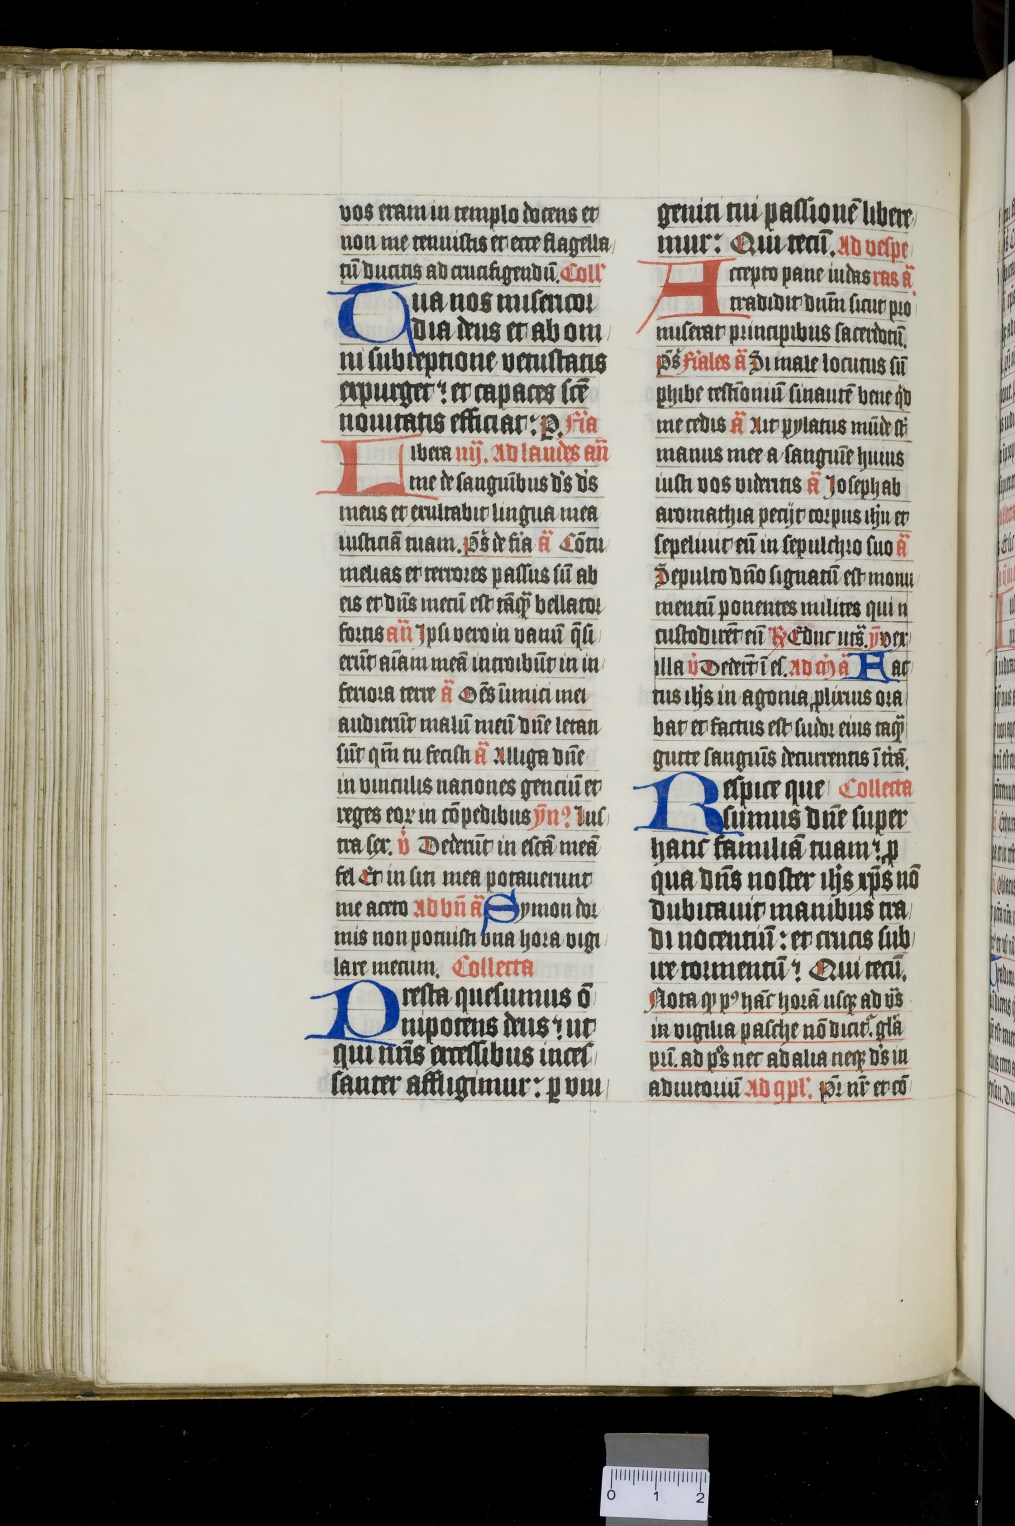 vos eram in templo docens et
non me tenuistis et ecce flagella
tū ducitis ad crucifigendū. Coll'
Tua nos misericor
dia deus et ab om
ni subreptione vetustatis
expurget: et capaces scē
novitatis efficiat: P. Fīa
Libera iiij. Ad laudes añ
me de sanguībus ds ds
meus et exultabit lingua mea
iusticiā tuam. ps de fīa ā Cōtu
melias et terrores passus sū ab
eis et dns mecū est tāq̄ bellator
fortis añ Ipsi vero in vanū q̄si
erūt aīam meā introibūt in in
feriora terre ā Oēs inimici mei
audierūt malū meū dne letati
sūt qm tu fecisti ā Alliga dne
in vinculis nationes gentiū et
reges eoꝝ in cōpedibus yn Lus
tra sex. v Dederūt in escā meā
fel Et in siti mea potaverunt
me aceto Ad bñ ā Symon dor
mis non potuisti una hora vigi
lare mecum. Collecta
Presta quesumus ō
nipotens deus: ut
qui nris excessibus inces
santer affligimur: p uni
geniti tui passionē libere
mur: Qui tecū. Ad vespe
Accepto pane iudas ras ā
tradidit dnm sicut pro
miserat principibus sacerdotū.
ps fīales ā Si male locutus sū
phibe testīoniū sinautē bene qd
me cedis ā Ait pylatus mūde st
manus mee a sanguīe huius
iusti vos videritis ā Joseph ab
aromathia petijt corpus ihu et
sepelivit eū in sepulchro suo ā
Sepulto dno signatū est monu
mentū ponentes milites qui
custodirēt eū R Educ yn ver
illa v Dederūt ī es. Ad m ā Fac
tus ihs in agonia plixius ora
bat et factus est sudor eius tāq̄
gutte sanguīs decurrentis ī trā.
Respice que Collecta
sumus dne super
hanc familiā tuam: p
qua dns noster ihs xps nō
dubitavit manibus tra
di nocentiū: et crucis sub
ire tormentū: Qui tecū.
Nota qp pꝰ hāc horā usqꝫ ad vs
in vigilia pasche nō dicit gla
pri. ad ps nec ad alia neqꝫ ds in
adiutoriū Ad cpl'. Pr nr et cō